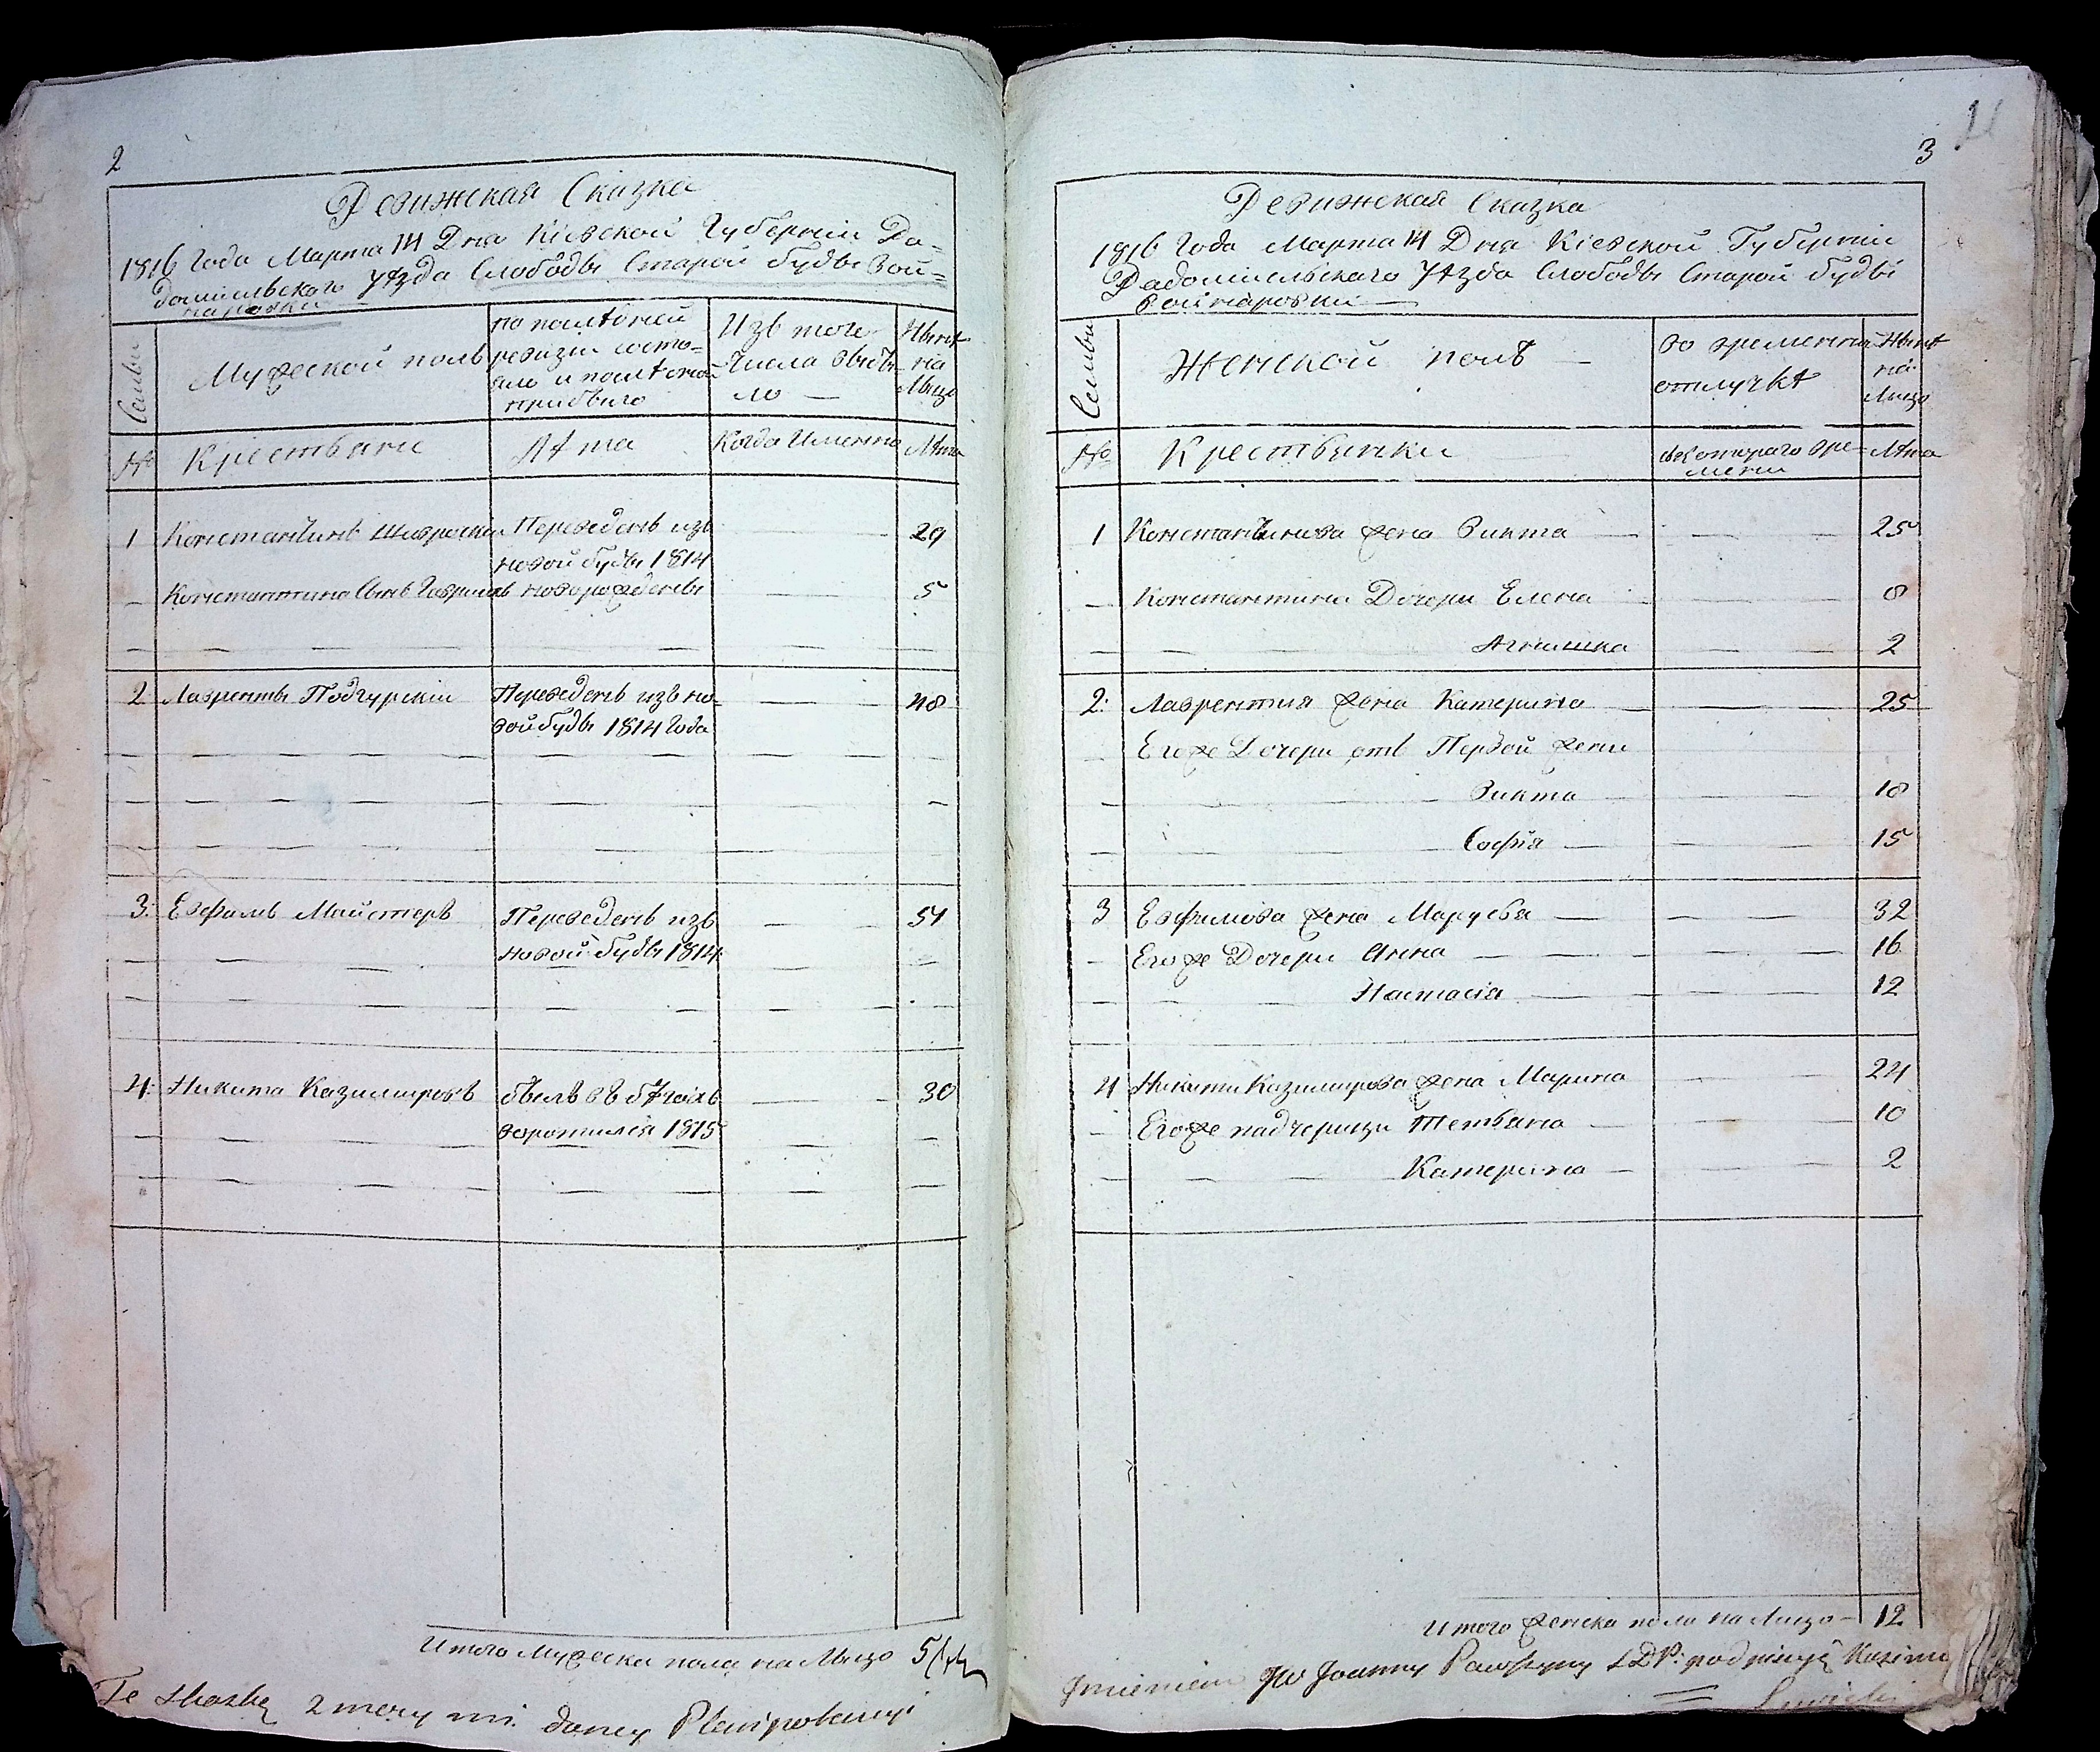 2
Ревижская Сказка
1816 Года Марта 14 Дня Кіевской Губерніи Ра-
домисльского Уѣзда Слободы Старой Буды Вой-
наровки
Семьи
Мужеской полъ
По послѣдней
ревизіи состо-
яло и послѣ оной
прибыло
Изъ того
числа выбы-
ло —
Нынѣ
на
Лицо
№
Крестьяне
Лѣта
Когда Имянно
Лѣта
1 Константинъ Переведенъ изъ 29
новой буды 1814
Константина Сынъ Гаврилъ новорожденъ 5
2 Лаврентъ Подгурскій Переведенъ изъ но- 48
вой буды 1814 Года
3: Евфимъ Майстеръ Переведенъ изъ 54
новой буды 1814
4: Никита Казимировъ былъ въ бѣгахъ 30
воротился 1815
Итого Мужеска пола на Лицо
Te skaskę z mocy mi daney
3
Ревижская Сказка
1816 Года Марта 14 Дня Кіевской Губерніи
Радомисльскаго Уѣзда Слободы Старой Буды
Войнаровки —
Семьи
Женской полъ —
Во временной
отлучкѣ
Нынѣ
на
Лицо
№
Крестьянки
Съ котораго вре-
мени
Лѣта
1 Константинова жена Викта 25
Константина Дочери Елена 8
Агнишка 2
2: Лаврентия жена Катерина 25
Егоже Дочери отъ Первой жени
Викта 18
Софія 15
3 Евфимова жена Марусья 32
Егоже Дочери Анна 16
Настасія 12
4 Никити Казимирова жена Марина 24
Егоже падчерици Тетьяна 10
Катерина 2
Итого женска пола на Лицо — 12
Imieniem JW Joanny podpisuję Kazimi